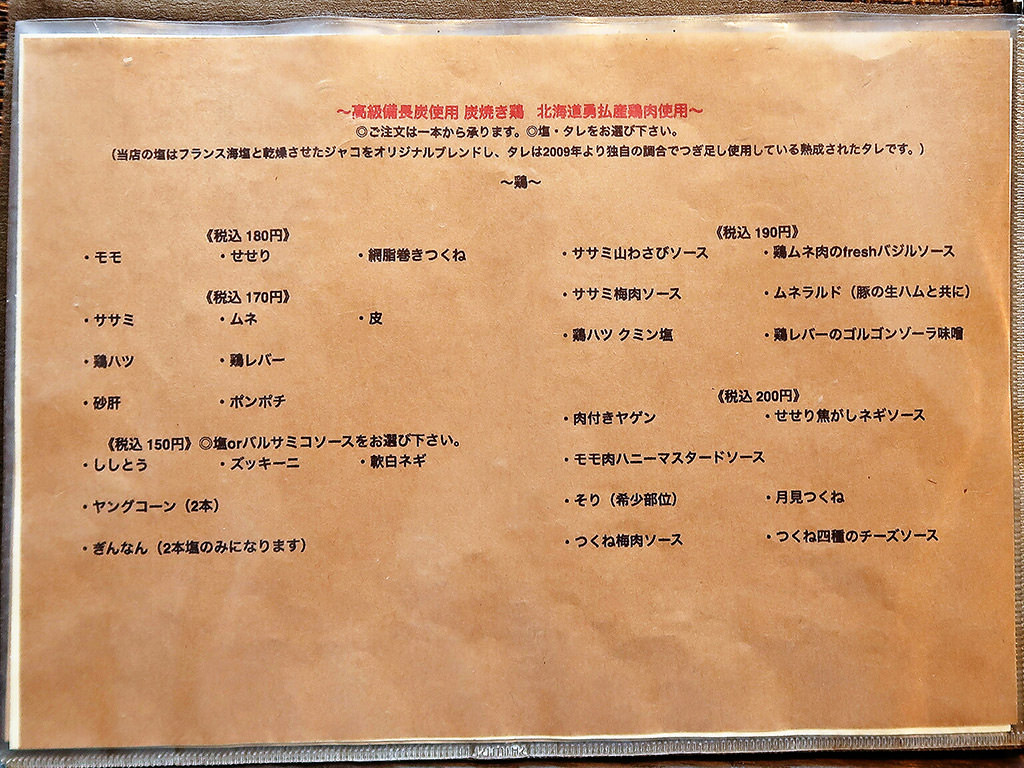 ～高級備長炭使用 炭焼き鶏　北海道勇払産鶏肉使用～
◎ご注文は一本から承ります。◎塩・タレをお選び下さい。
（当店の塩はフランス海塩と乾燥させたジャコをオリジナルブレンドし、タレは2009年より独自の調合でつぎ足し使用している熟成されたタレです。）
～鶏～
《税込 180円》
・モモ　・せせり　・網脂巻きつくね
《税込 170円》
・ササミ　・ムネ　・皮
・鶏ハツ　・鶏レバー
・砂肝　・ポンポチ
《税込 150円》◎塩orバルサミコソースをお選び下さい。
・ししとう　・ズッキーニ　・軟白ネギ
・ヤングコーン（2本）
・ぎんなん（2本塩のみになります）
《税込 190円》
・ササミ山わさびソース　・鶏ムネ肉のfreshバジルソース
・ササミ梅肉ソース　・ムネラルド（豚の生ハムと共に）
・鶏ハツ クミン塩　・鶏レバーのゴルゴンゾーラ味噌
《税込 200円》
・肉付きヤゲン　・せせり焦がしネギソース
・モモ肉ハニーマスタードソース
・そり（希少部位）　・月見つくね
・つくね梅肉ソース　・つくね四種のチーズソース